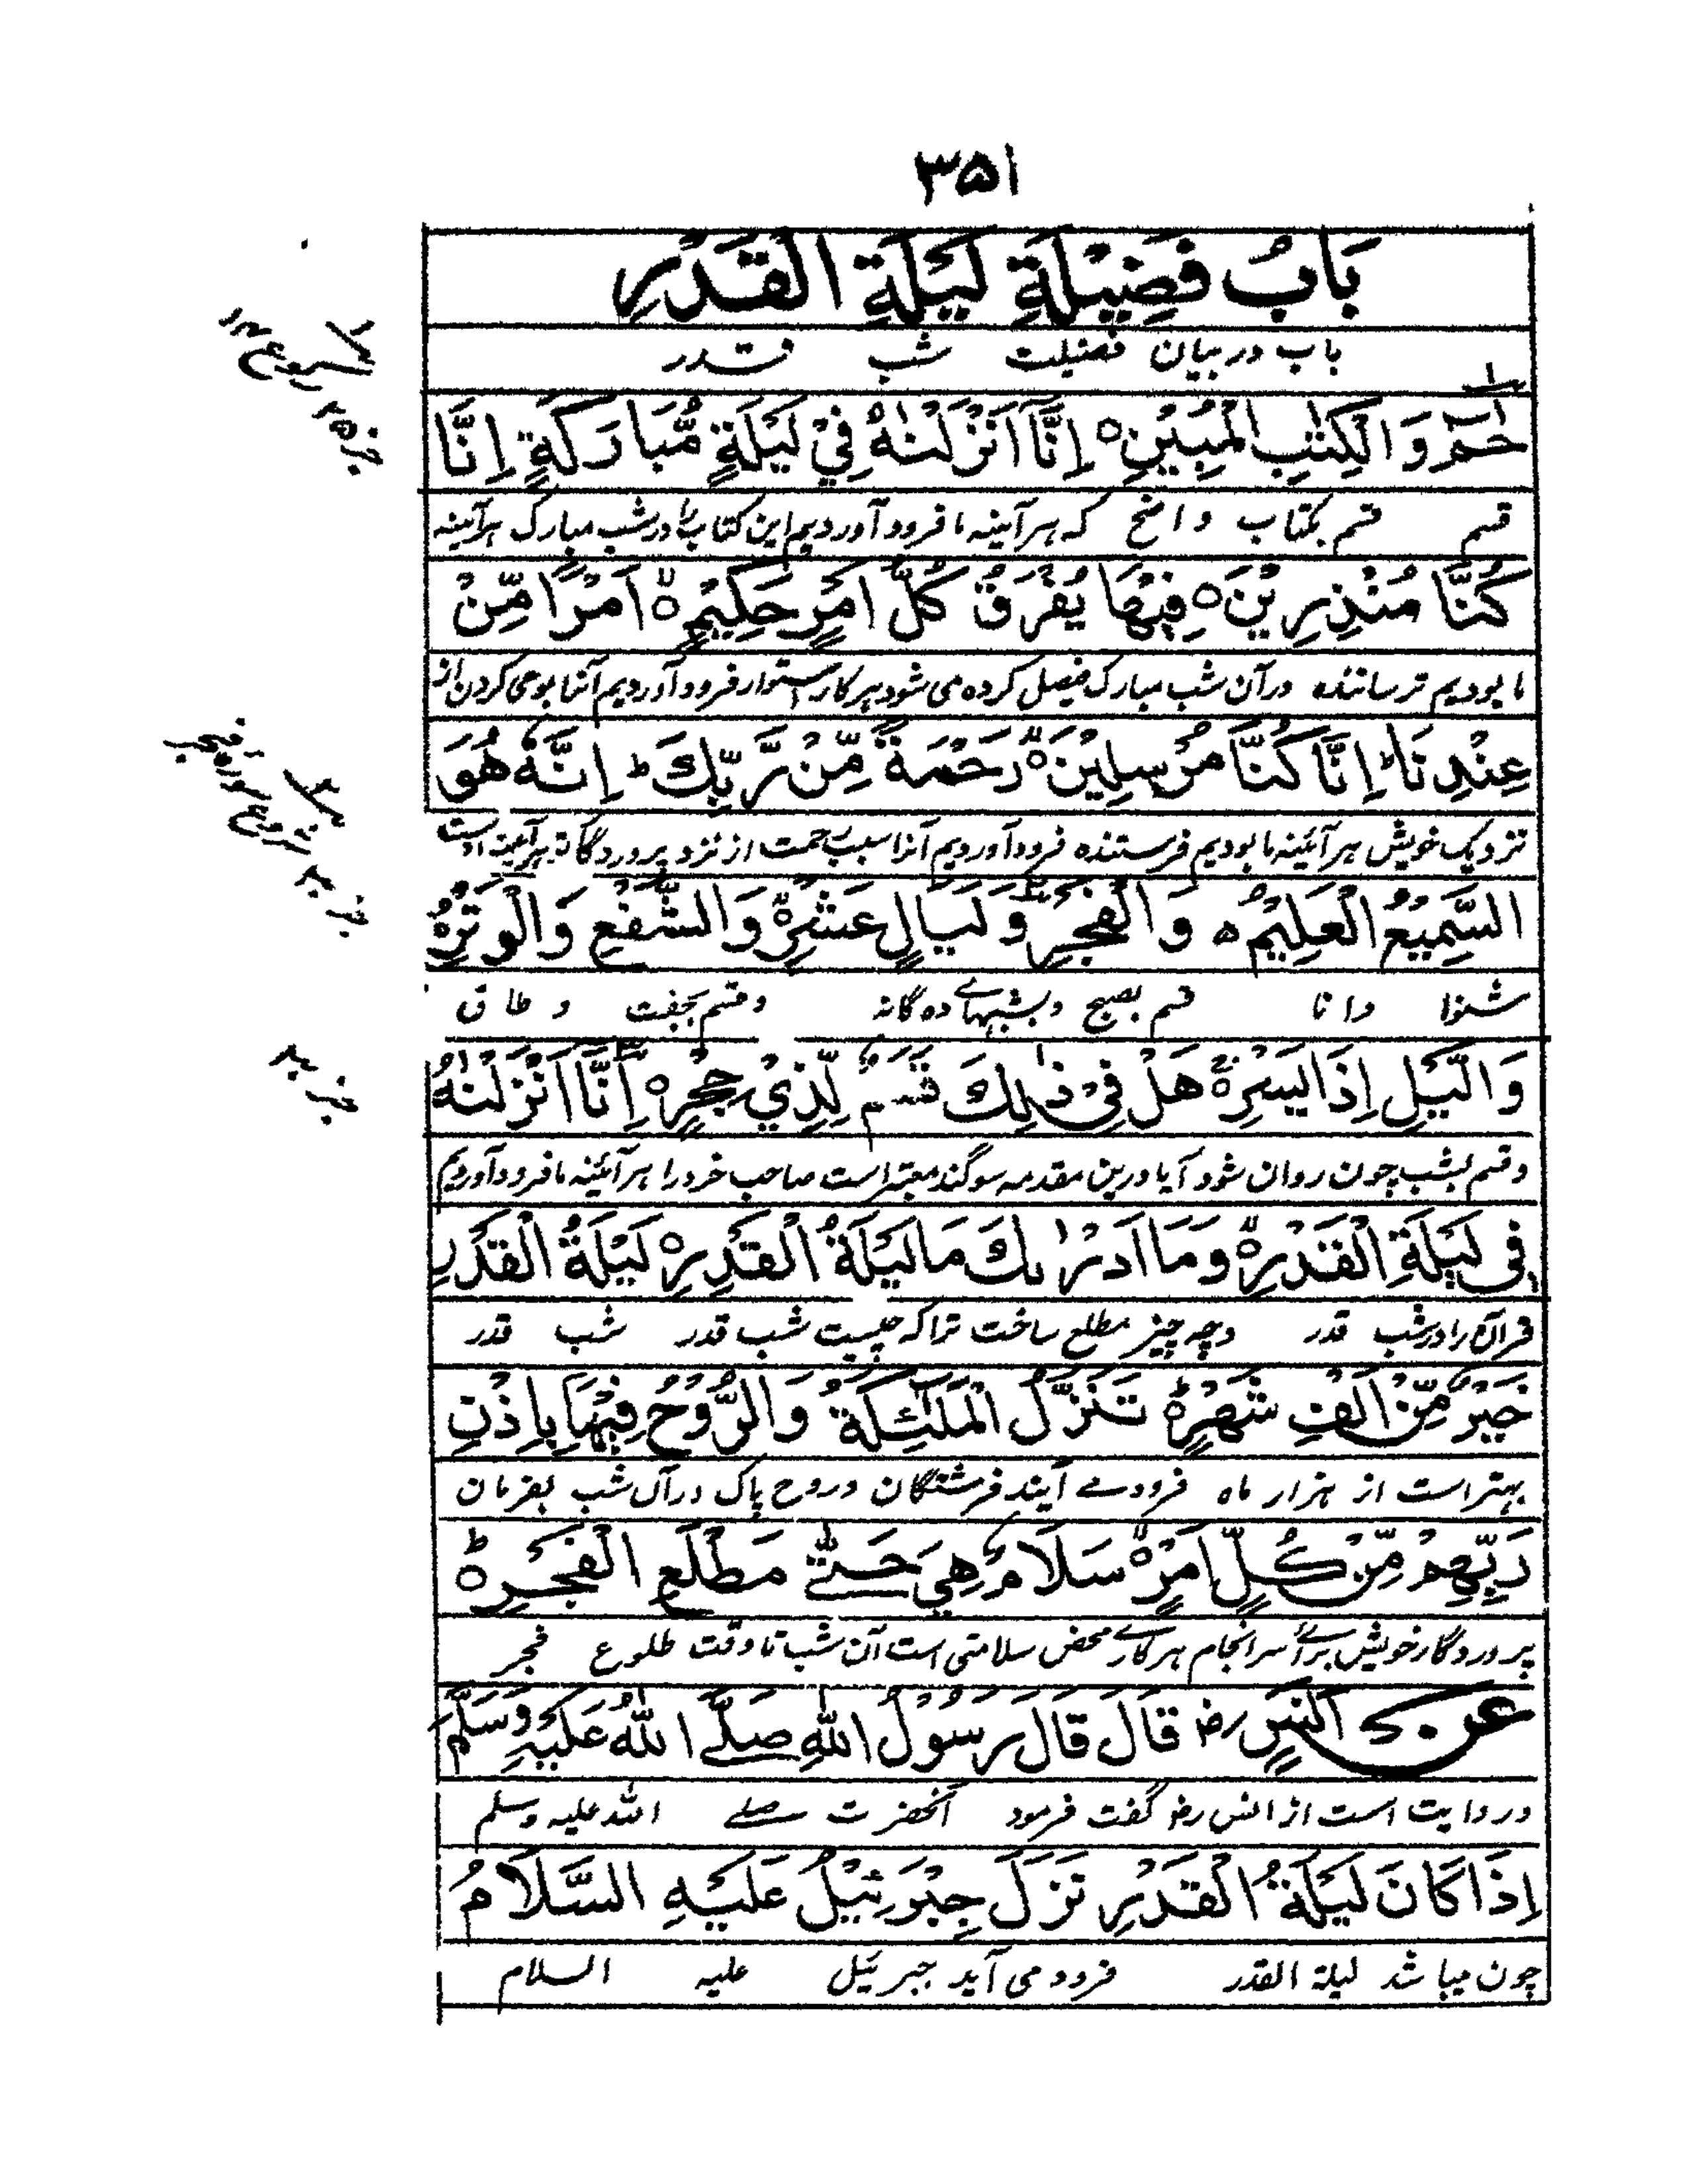 ۳۵۱
بَابُ فَضِيْلَةِ لَيْلَةِ الْقَدْرِ
باب در بیان فضیلت شب قدر
حٰمٓ وَالْكِتٰبِ الْمُبِيْنِ ہ اِنَّا اَنْزَلْنٰهُ فِيْ لَيْلَةٍ مُّبَارَكَةٍ اِنَّا
قسم قسم بکتاب واضح که هرآئینه ما فرود آوردیم این کتاب را در شب مبارک هرآئینه
كُنَّا مُنْذِرِيْنَ ہ فِيْهَا يُفْرَقُ كُلُّ اَمْرٍ حَكِيْمٍ ہ اَمْرًا مِّنْ
ما بودیم ترساننده در آن شب مبارک فیصل کرده می شود هر کار استوار فرود آوردیم آنرا بوحی کردن از
عِنْدِنَا ط اِنَّا كُنَّا مُرْسِلِيْنَ ہ رَحْمَةً مِّنْ رَّبِّكَ ط اِنَّهٗ هُوَ
نزدیک خویش هرآئینه ما بودیم فرستنده فرود آوردیم آنرا بسبب رحمت از نزد پروردگار تو هرآئینه اوست
السَّمِيْعُ الْعَلِيْمُ ہ وَالْفَجْرِ وَلَيَالٍ عَشْرٍ ہ وَالشَّفْعِ وَالْوَتْرِ ہ
شنوا دانا قسم بصبح وبشبهاے ده گانه وقسم بجفت و طاق
وَالَّيْلِ اِذَا يَسْرِ ہ هَلْ فِيْ ذٰلِكَ قَسَمٌ لِّذِيْ حِجْرٍ ہ اِنَّا اَنْزَلْنٰهُ
وقسم بشب چون روان شود آیا درین مقدمه سوگند معتبر است صاحب خرد را هرآئینه ما فرود آوردیم
فِيْ لَيْلَةِ الْقَدْرِ ہ وَمَا اَدْرٰىكَ مَا لَيْلَةُ الْقَدْرِ ہ لَيْلَةُ الْقَدْرِ
قرآن را درشب قدر وچه چیز مطلع ساخت ترا که چیست شب قدر شب قدر
خَيْرٌ مِّنْ اَلْفِ شَهْرٍ ہ تَنَزَّلُ الْمَلٰٓئِكَةُ وَالرُّوْحُ فِيْهَا بِاِذْنِ
بهتر است از هزار ماه فرود مے آیند فرشتگان وروح پاک در آن شب بفرمان
رَبِّهِمْ مِّنْ كُلِّ اَمْرٍ ہ سَلَامٌ هِيَ حَتّٰى مَطْلَعِ الْفَجْرِ ہ
پروردگار خویش برائے سرانجام هر کارے محض سلامتی است آن شب تا وقت طلوع فجر
عن اَنَسٍ رض قَالَ قَالَ رَسُوْلُ اللّٰهِ صَلَّى اللّٰهُ عَلَيْهِ وَسَلَّمَ
در روایت است از انس رض گفت فرمود آنحضرت صلے الله علیه وسلم
اِذَا كَانَ لَيْلَةُ الْقَدْرِ نَزَلَ جِبْرَئِيْلُ عَلَيْهِ السَّلَامُ
چون میباشد لیلة القدر فرود می آید جبرئیل علیه السلام